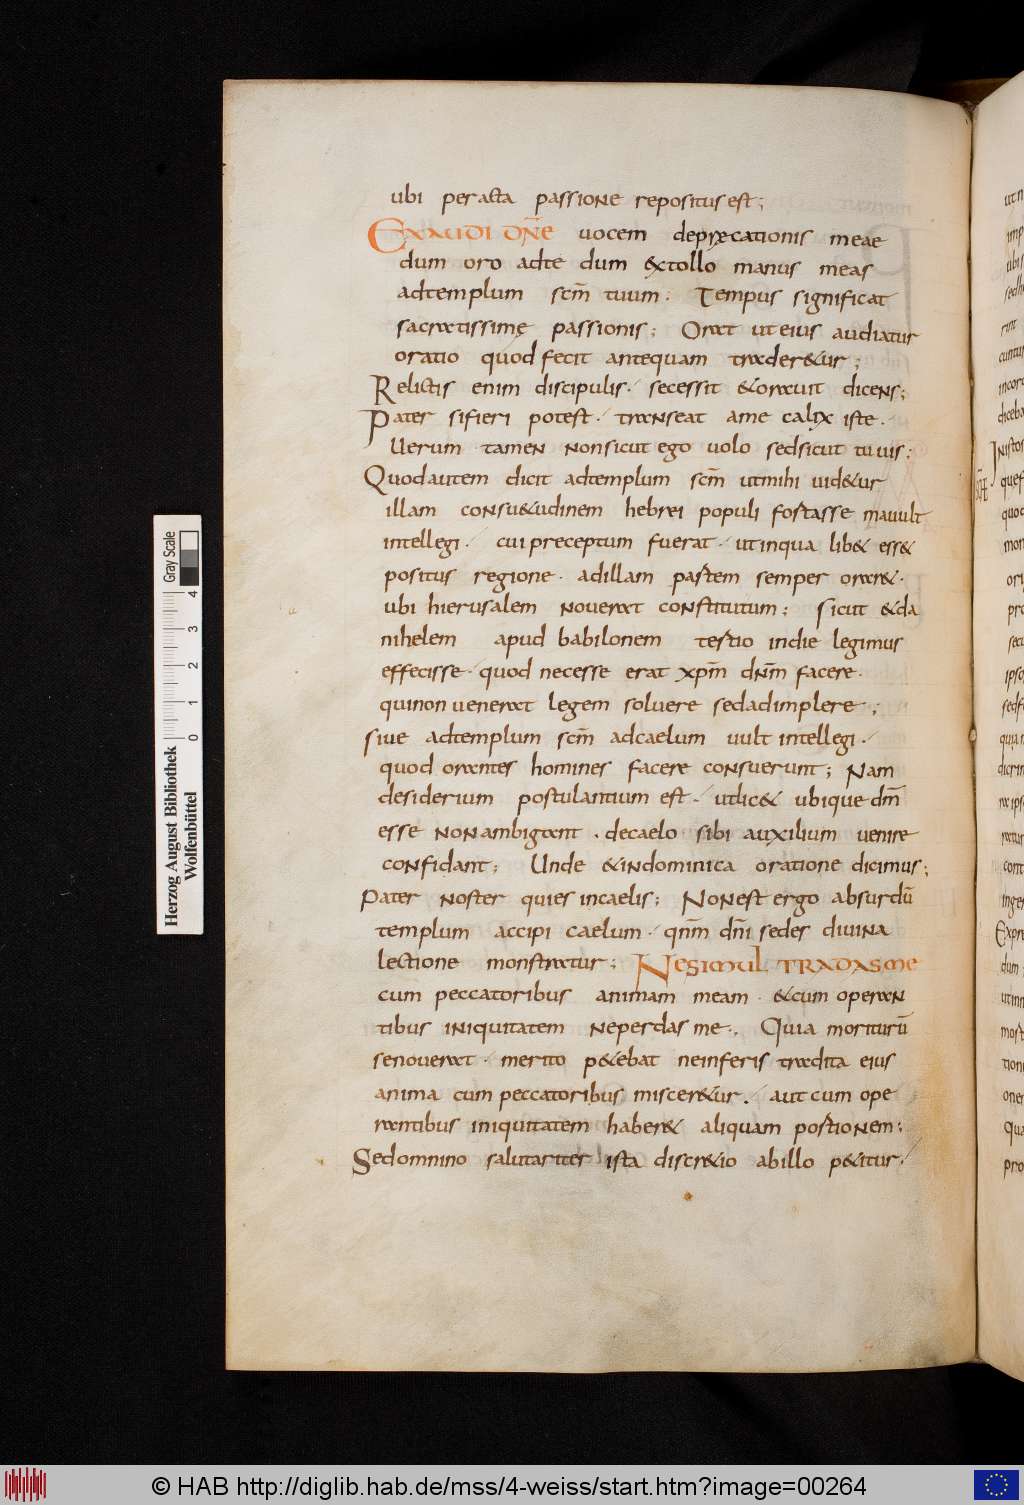 ubi peracta passione repositus est;
EXAUDI DN̄E uocem deprecationis meae
dum oro adte dum &tollo manus meas
adtemplum scm̄ tuum: Tempus significat
sacratissimę passionis; Orat ut eius audiatur
oratio quod fecit antequam trader&ur;
Relictis enim discipulis. secessit &orauit dicens;
Pater si fieri potest. transeat ame calix iste.
Uerum tamen nonsicut ego uolo sedsicut tu uis;
Quodautem dicit adtemplum scm̄ utmihi uid&ur
illam consu&udinem hebrei populi fortasse mauult
intellegi. cui preceptum fuerat. utinqua lib& ess&
positus regione. adillam partem semper orar&.
ubi hierusalem nouerat constitutum; Sicut &da
nihelem apud babilonem testio indie legimus
effecisse. quod necesse erat xpm̄ dn̄m facere.
quinon uenerat legem soluere sedadimplere;
Siue adtemplum scm̄ adcaelum uult intellegi.
quod orantes homines facere consuerunt; Nam
desiderium postulantium est. utlic& ubique dm̄
esse nonambigant. decaelo sibi auxilium uenire
confidant; Unde &indominica oratione dicimus;
Pater noster quies incaelis; Nonest ergo absurdū
templum accipi caelum. qn̄m dn̄i sedes diuina
lectione monstratur; NESIMUL TRADAS ME
cum peccatoribus animam meam. &cum operan
tibus iniquitatem neperdas me. Quia moriturū
senouerat. merito p&ebat neinferis tradita eius
anima cum peccatoribus miscer&ur. aut cum ope
rantibus iniquitatem haber& aliquam portionem;
Sedomnino salutariter ista discr&io abillo p&itur.
Herzog August Bibliothek
Wolfenbüttel
0 1 2 3 4
Gray Scale
© HAB http://diglib.hab.de/mss/4-weiss/start.htm?image=00264